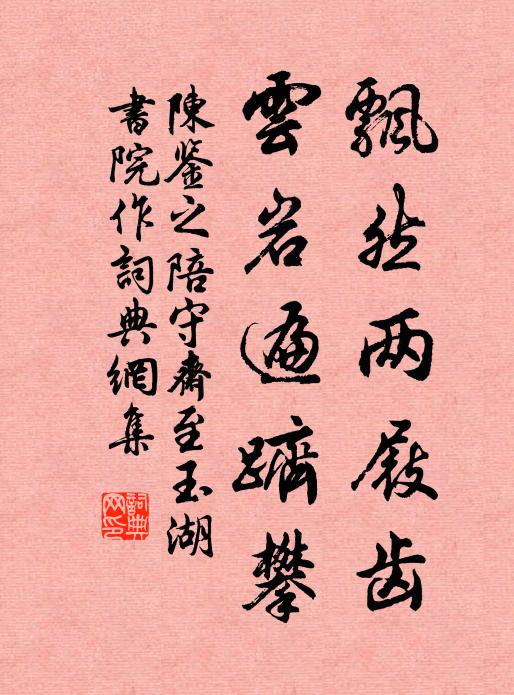 飄然两屐齿
雲岩遍躋攀
陳鉴之陪守齋至玉湖
書院作詞典網集
詞典网印